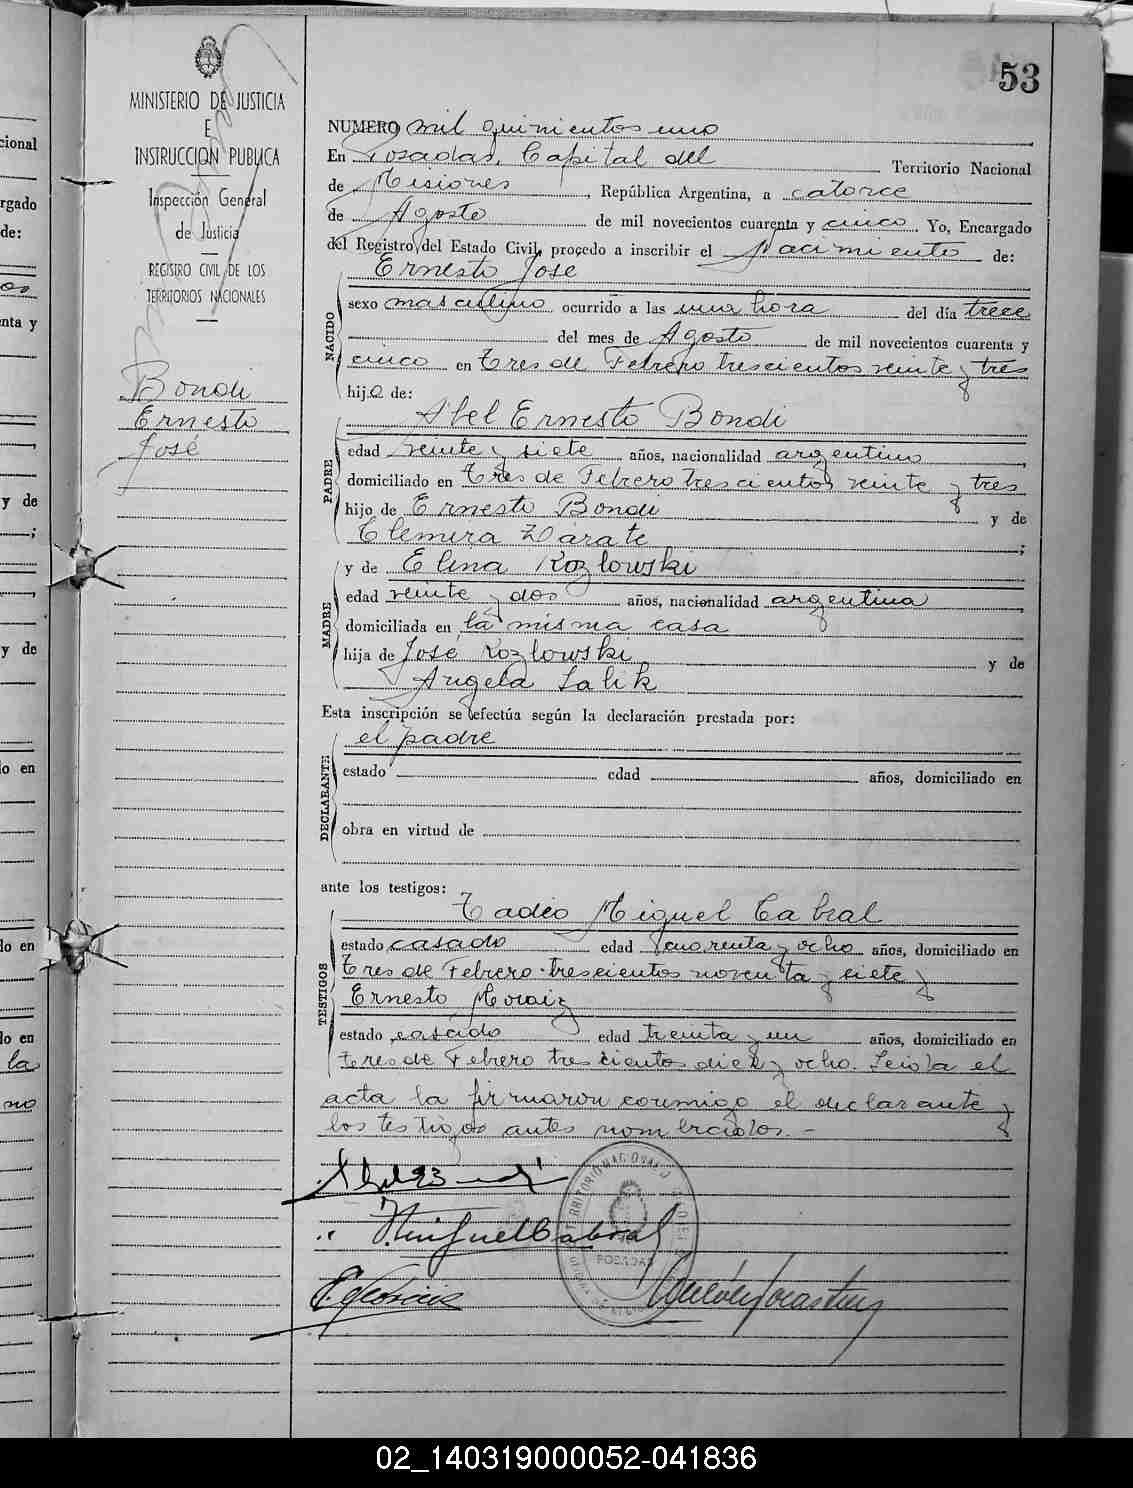 53
MINISTERIO DE JUSTICIA
E
INSTRUCCION PUBLICA
Inspección General
de Justicia
REGISTRO CIVIL DE LOS
TERRITORIOS NACIONALES
Bondi
Ernesto
José
NUMERO mil quinientos uno
En Posadas, Capital del Territorio Nacional
de Misiones, República Argentina, a catorce
de Agosto de mil novecientos cuarenta y cinco Yo, Encargado
del Registro del Estado Civil, procedo a inscribir el Nacimiento de:
Ernesto José
NACIDO
sexo masculino ocurrido a las una hora del día trece
del mes de Agosto de mil novecientos cuarenta y
cinco en Tres de Febrero trescientos veinte y tres
hijo de:
Abel Ernesto Bondi
PADRE
edad veinte y siete años, nacionalidad argentino,
domiciliado en Tres de Febrero trescientos veinte y tres
hijo de Ernesto Bondi y de
Elemira Zárate;
y de Elina Kozlowski
MADRE
edad veinte y dos años, nacionalidad argentina
domiciliada en la misma casa
hija de José Kozlowski y de
Angela Salik
Esta inscripción se efectúa según la declaración prestada por:
el padre
DECLARANTE
estado edad años, domiciliado en
obra en virtud de
ante los testigos:
Tadéo Miguel Cabral
TESTIGOS
estado casado edad cuarenta y ocho años, domiciliado en
Tres de Febrero trescientos noventa y siete y
Ernesto
estado casado edad treinta y un años, domiciliado en
tres de Febrero trescientos diez y ocho. Leída el
acta la firmaron conmigo el declarante y
los testigos antes nombrados.-
Miguel Cabral
POSADAS
cional
rgado
de:
nta y
y de
y de
lo en
lo en
lo en
la
no
02_140319000052-041836